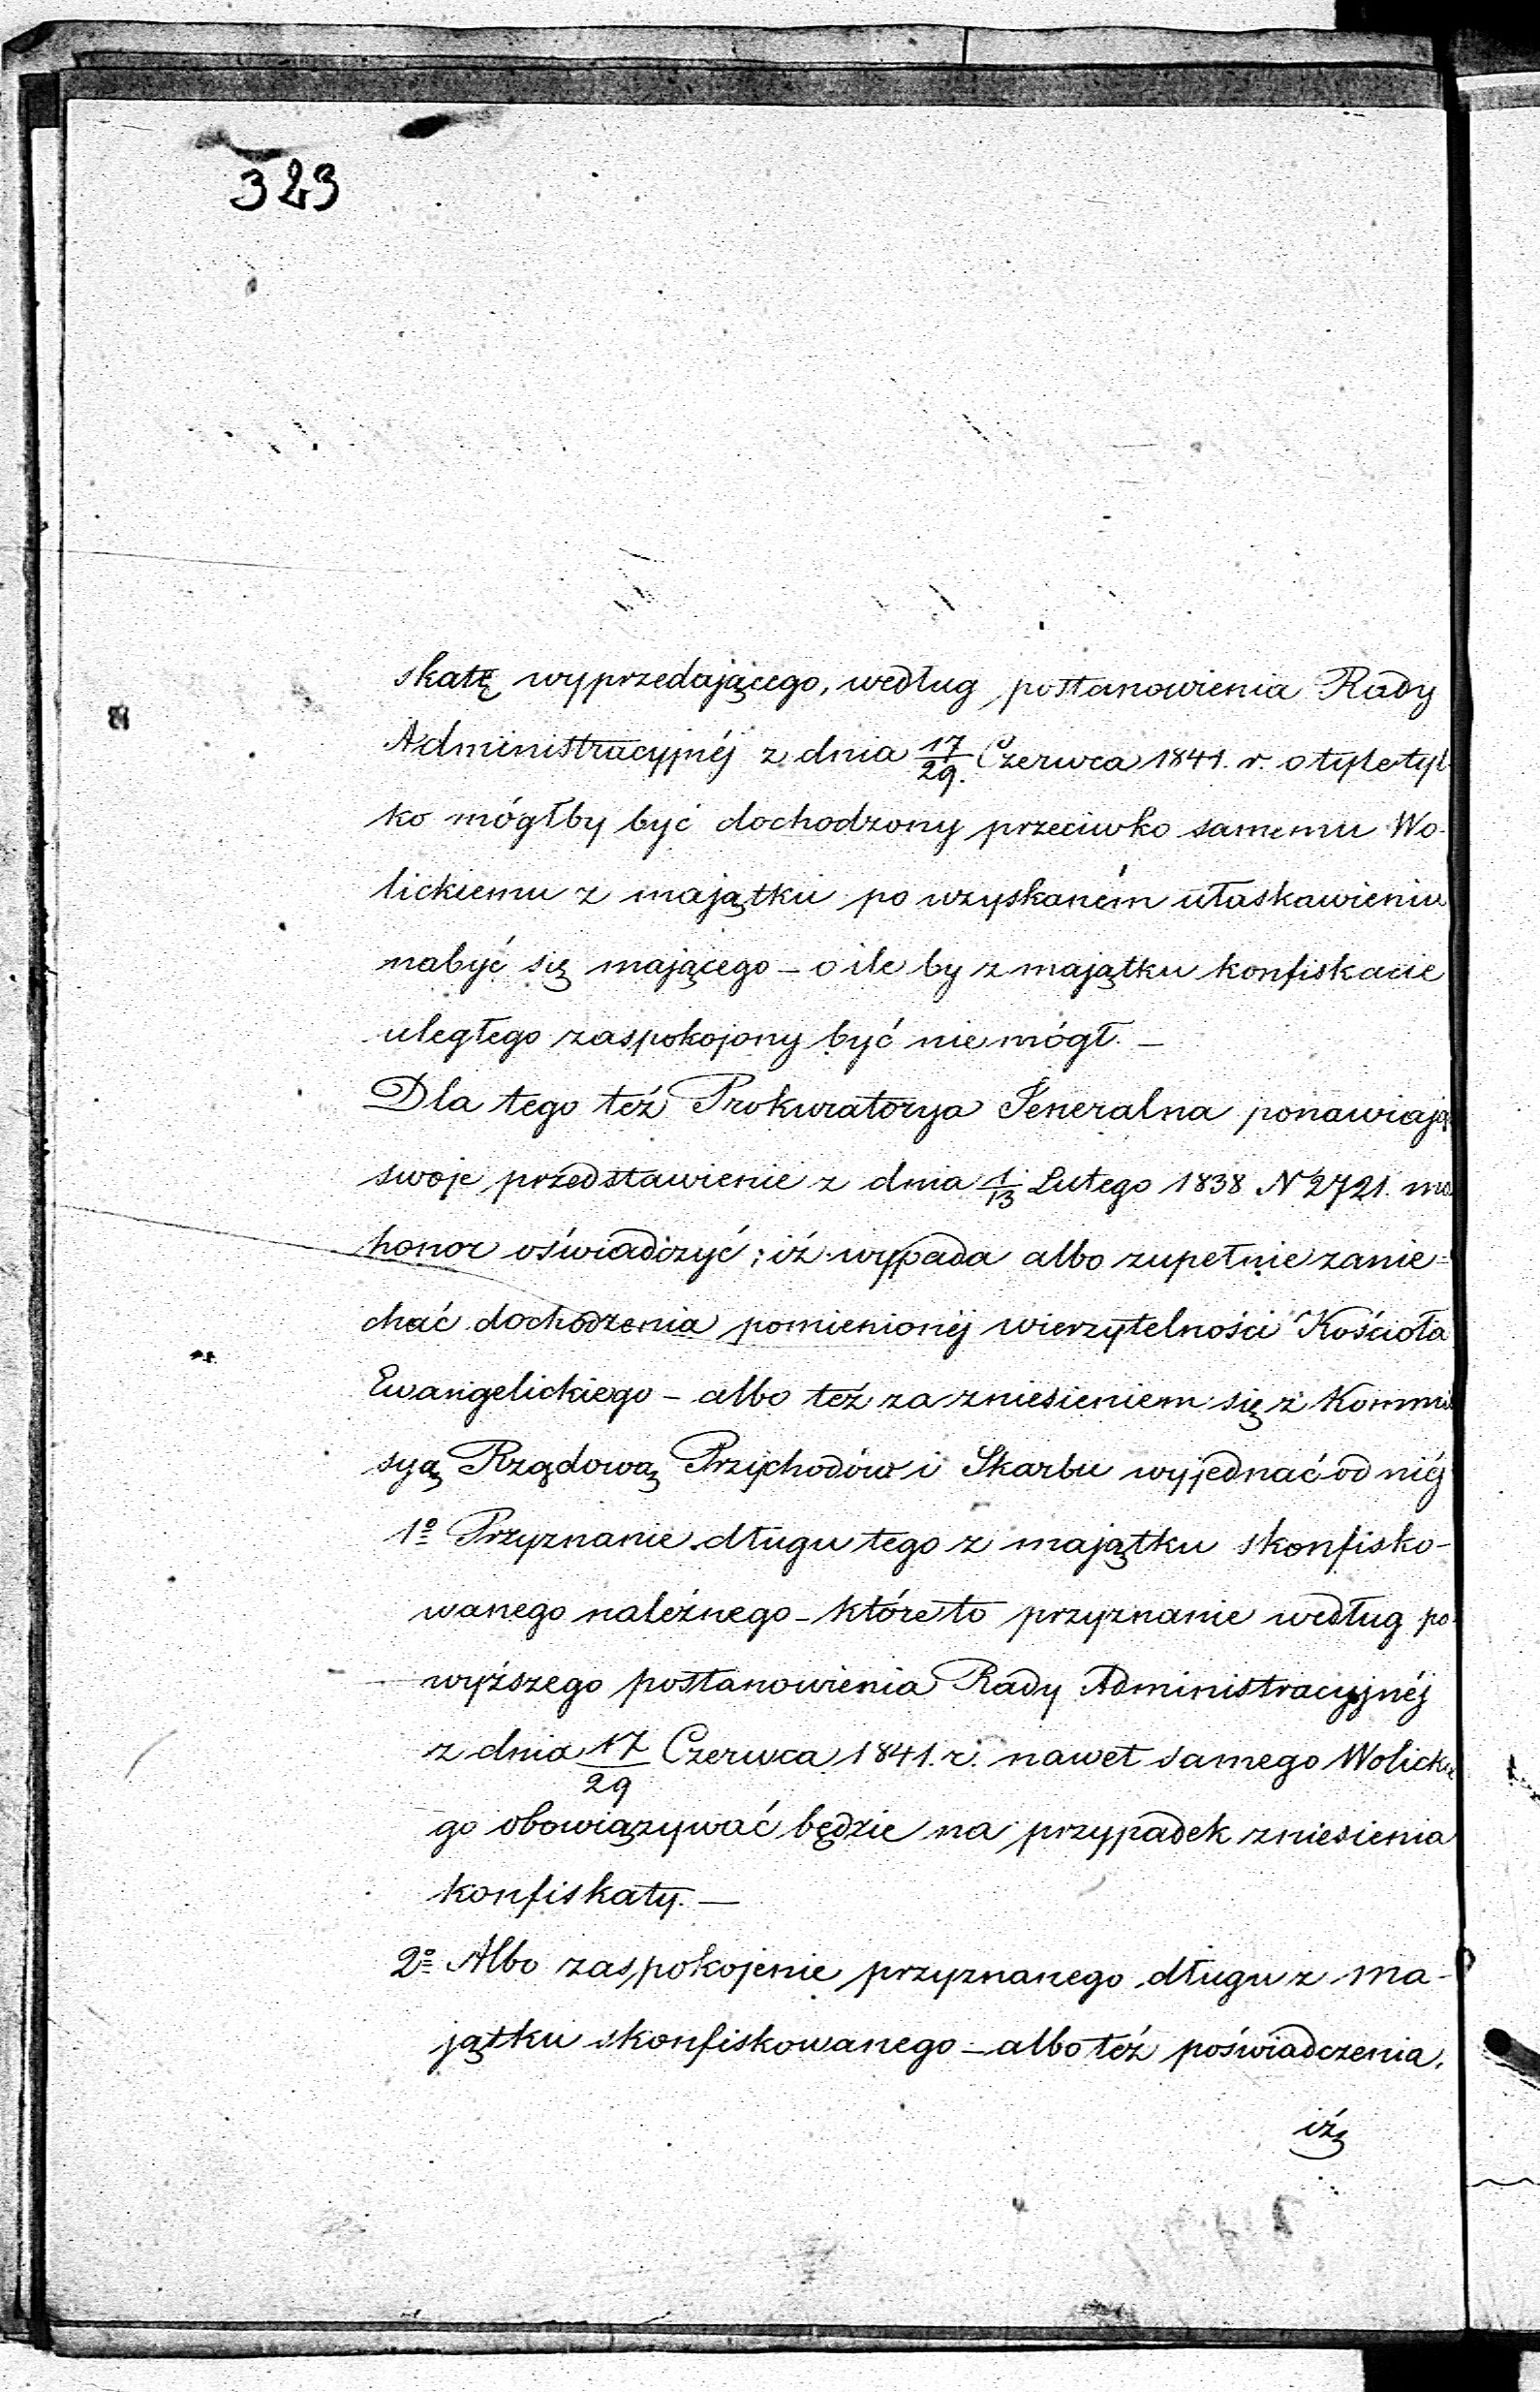 323
skatę wyprzedającego, według postanowienia Rady
Administracyjnéj z dnia 17/29. Czerwca 1841. r. o tyle tyl-
ko mógłby być dochodzony przeciwko samemu Wo-
lickiemu z majątku po uzyskaném ułaskawieniu
nabyć się mającego – o ile by z majątku konfiskacie
uległego zaspokojony być nie mógł. –
Dla tego też Prokuratorya Jeneralna ponawiają
swoje przedstawienie z dnia 1/13 Lutego 1838 N 2721. ma
honor oświadczyć; iż wypada albo zupełnie zanie-
chać dochodzenia pomienionéj wierzytelności Kościoła
Ewangelickiego – albo też za zniesieniem się z Kommis
syą Rządową Przychodów i Skarbu wyjednać od niéj
1º Przyznanie długu tego z majątku skonfisko-
wanego należnego – które to przyznanie według po-
wyższego postanowienia Rady Administracyjnéj
z dnia 17/29 Czerwca 1841. r. nawet samego Wolickie
go obowiązywać będzie na przypadek zniesienia
konfiskaty. –
2º Albo zaspokojenie przyznanego długu z ma-
jątku skonfiskowanego – albo téż poświadczenia,
iż